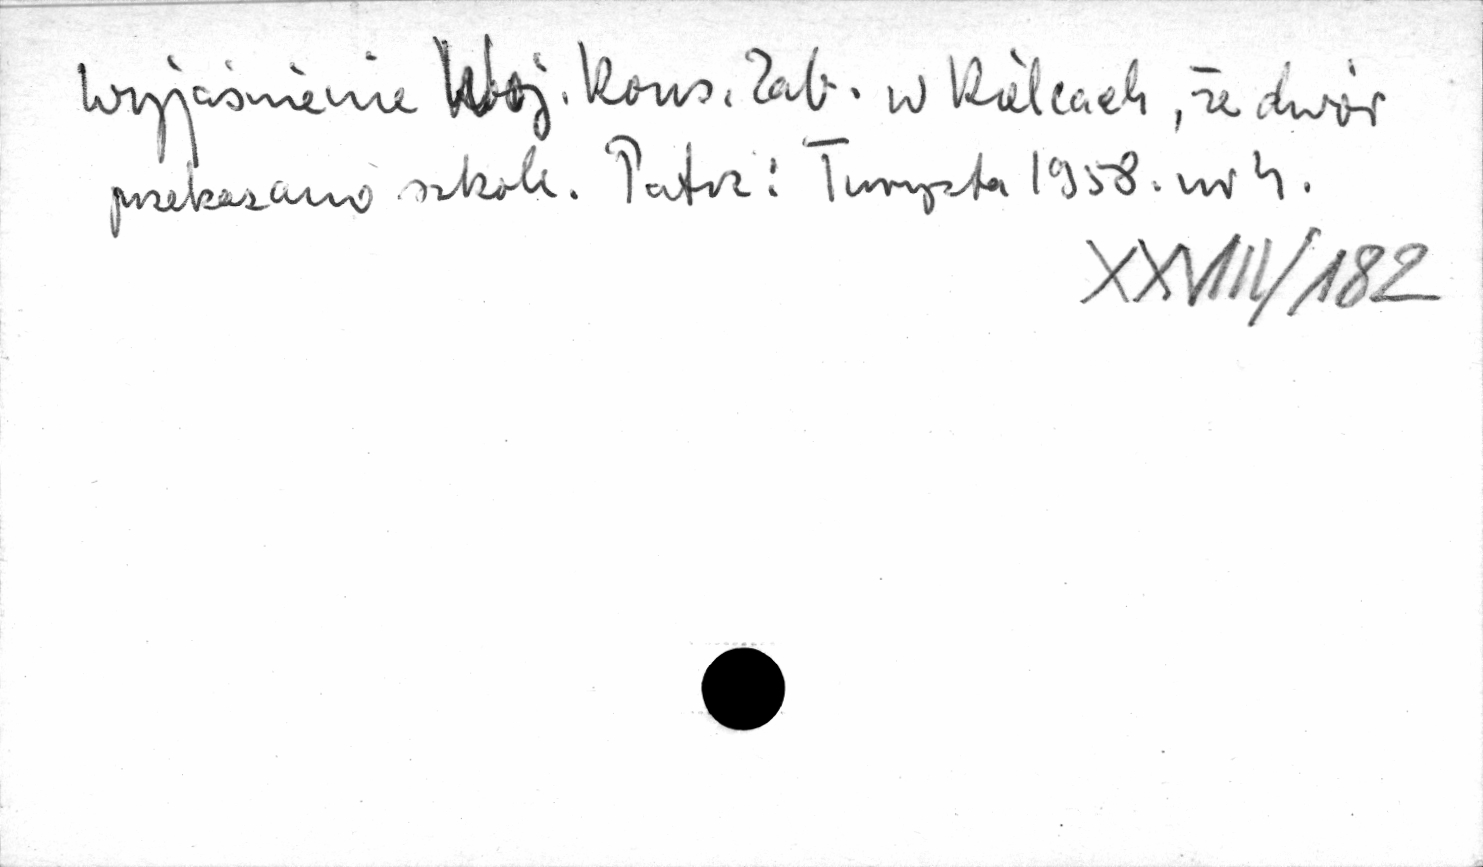 Wyjaśnienie Woj. Kons. Zab. w Kielcach, że dwór
przekazano szkole. Patrz: Turysta 1958. nr 4.
XXVIII/182